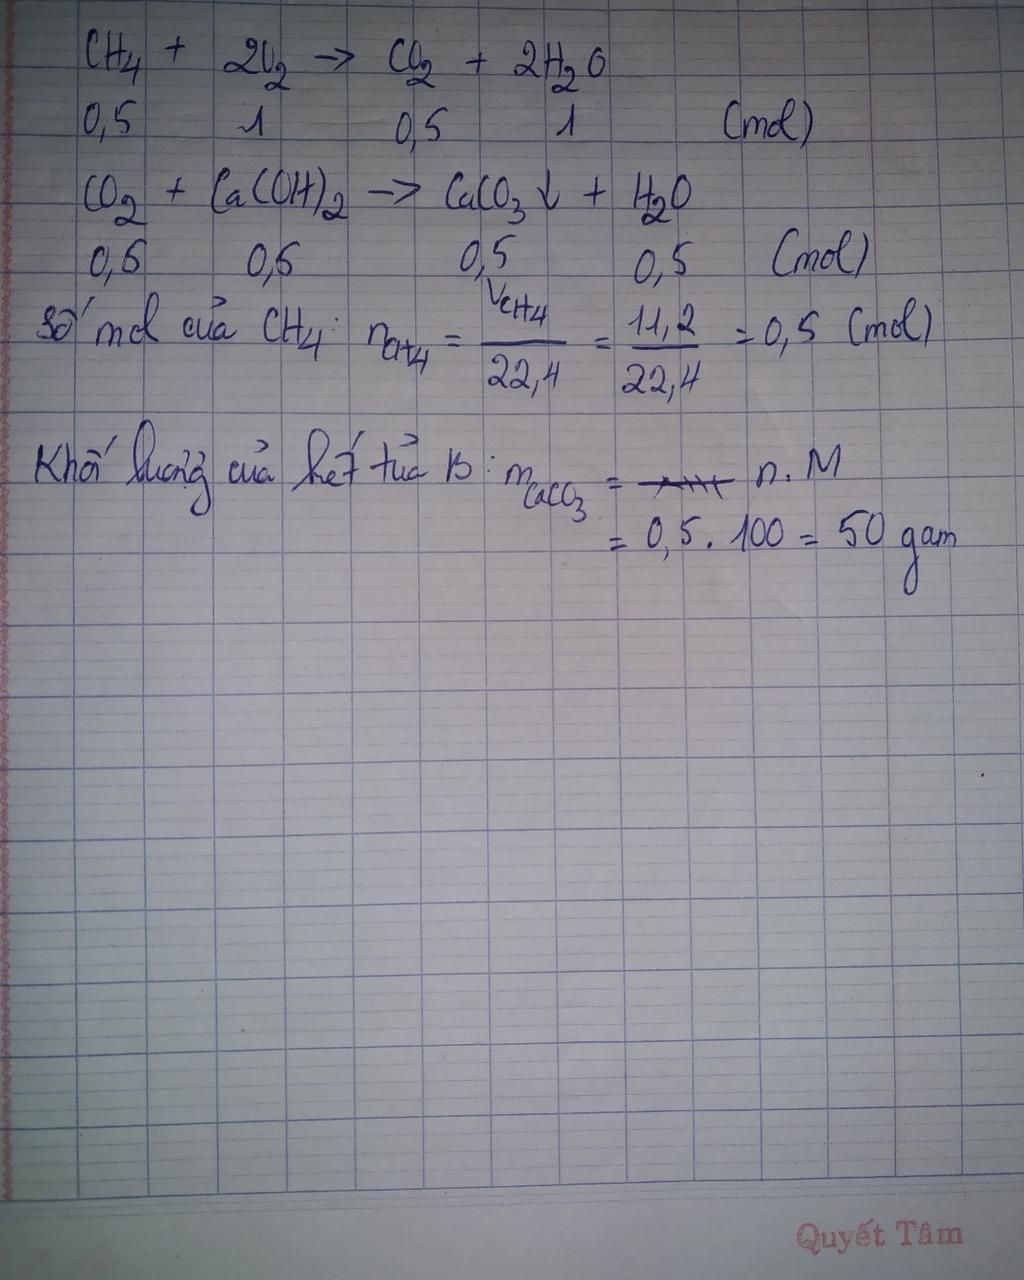 CH4 + 2O2 → CO2 + 2H2O
0,5 1 0,5 1 (mol)
CO2 + Ca(OH)2 → CaCO3↓ + H2O
0,5 0,5 0,5 0,5 (mol)
Số mol của CH4: nCH4 = VCH4/22,4 = 11,2/22,4 = 0,5 (mol)
Khối lượng của kết tủa B: mCaCO3 = n.M
= 0,5. 100 = 50 gam
Quyết Tâm